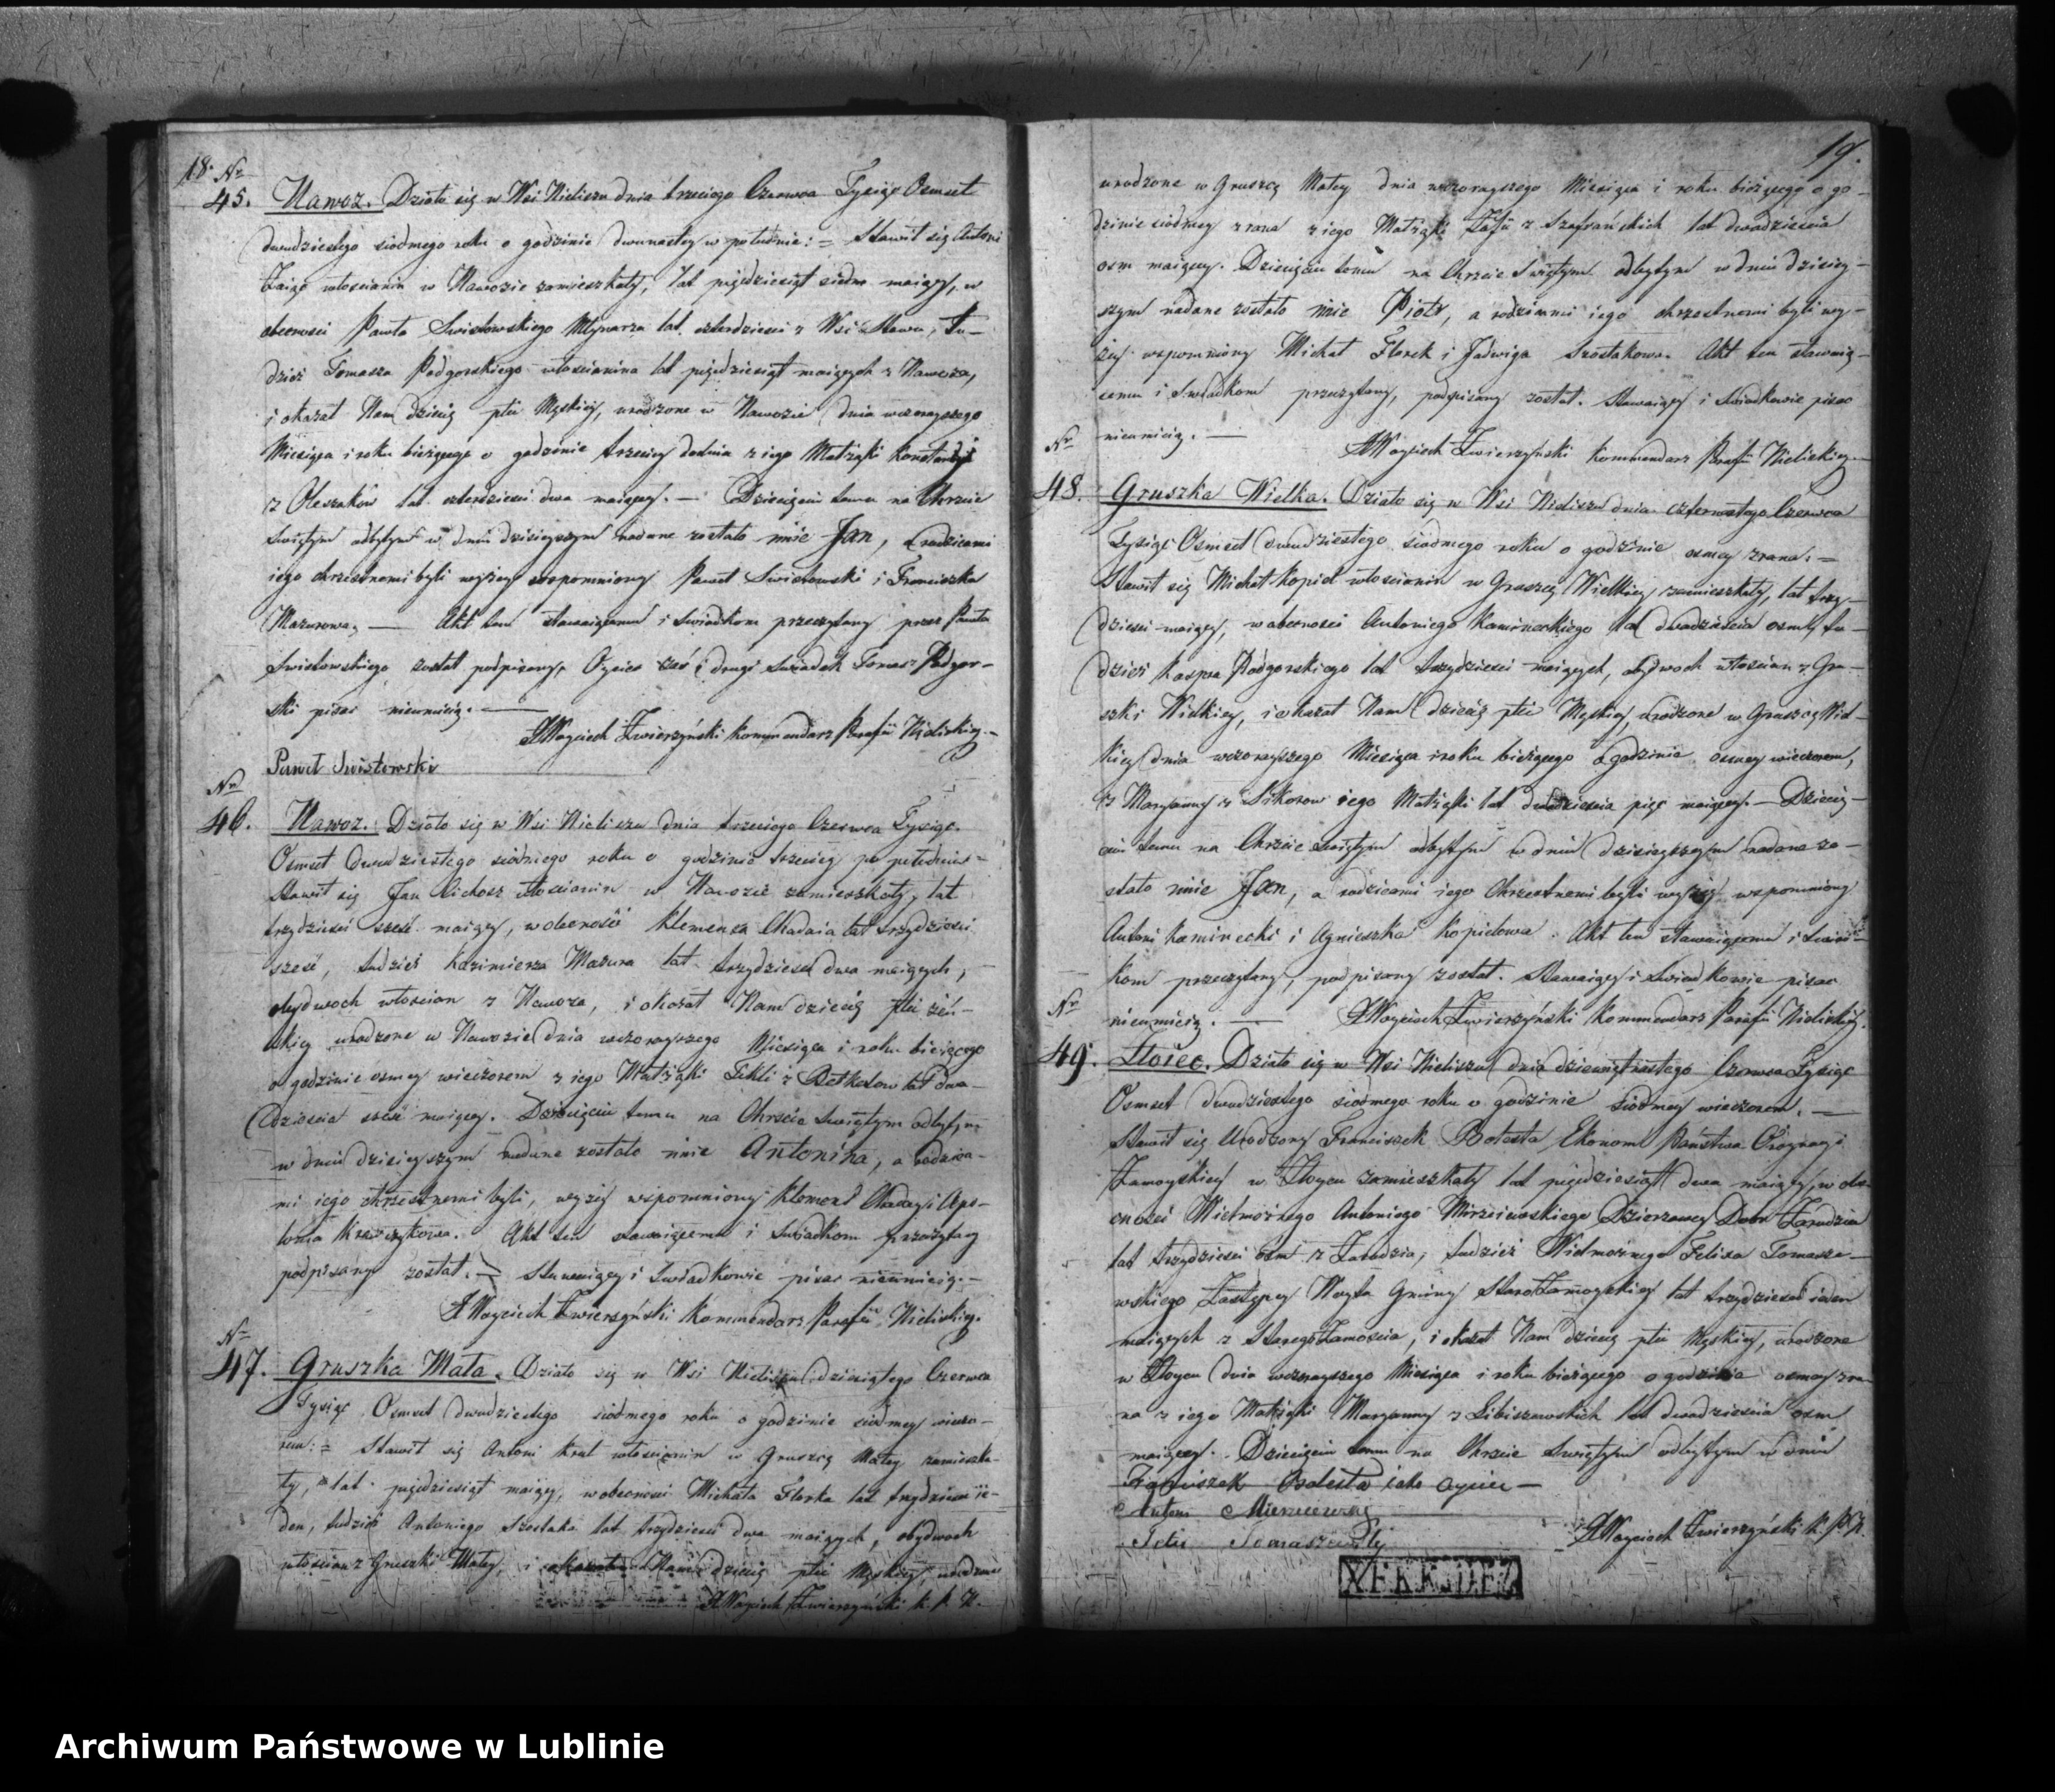 18. Nr
45. Nawoz. Działo się w Wsi Nieliszu dnia trzeciego Czerwca Tysiąc Osmset
dwudziestego siodmego roku o godzinie dwunastey w południe: = Stawił się Antoni
Zając włościanin w Nawozie zamieszkały, lat pięćdziesiąt siedm maiący, w
obecności Pawła Swistowskiego Młynarza lat czterdzieści z Wsi Stawu, tu-
dzież Tomasza Podgorskiego włościanina lat pięćdziesiąt maiących z Nawoza,
i okazał Nam dziecię płci Męskiey, urodzone w Nawozie dnia wczorayszego
Miesiąca i roku bieżącego o godzinie trzeciey z iego Małżąki Konstancyi
z Oleszaków lat czterdzieści dwa maiącey. — Dziecięciu temu na Chrzcie
Swiętym odbytym w dniu dzisieyszym nadane zostało imie Jan, a rodzicami
iego chrzestnemi byli wyżey wspomniony Paweł Swistowski i Franciszka
Mazurowa, — Akt ten stawaiącemu i Swiadkom przeczytany przez Pawła
Swistowskiego został podpisany, Oyciec zaś i drugi Swiadek Tomasz Podgor-
ski pisać nieumieią. —
X Woyciech Zwierzyński Kommendarz Parafii Nieliskiey. —
Paweł Swistowski
Nr
46. Nawoz. Działo się w Wsi Nieliszu dnia trzeciego Czerwca Tysiąc
Osmset dwudziestego siodmego roku o godzinie trzeciey po południu =
Stawił się Jan Cichosz włościanin w Nawozie zamieszkały, lat
trzydzieści sześć maiący, w obecności Klemensa Chadaia lat trzydzieści
sześć, tudzież Kazimierza Mazura lat trzydzieści dwa maiących,
obydwoch włościan z Nawoza, i okazał Nam dziecię płci żeń-
skiey urodzone w Nawozie dnia wczorayszego Miesiąca i roku bieżącego
o godzinie osmey wieczorem z iego Małżąki Tekli z lat dwa-
dzieścia sześć maiącey. Dziecięciu temu na Chrzcie Swiętym odbytym
w dniu dzisieyszym nadane zostało imie Antonina, a rodzica-
mi iego chrzestnemi byli, wyżey wspomniony Klemens Chaday i Apo-
lonia Akt ten stawaiącemu i Swiadkom przeczytany
podpisany został. — Stawaiący i Swiadkowie pisać nieumieią. —
X Woyciech Zwierzyński Kommendarz Parafii Nieliskiey.
Nr
47. Gruszka Mała. Działo się w Wsi Nieliszu dziesiątego Czerwca
Tysiąc Osmset dwudziestego siodmego roku o godzinie siodmey wieczo-
rem: = Stawił się Antoni Krul włościanin w Gruszcze Małey zamieszka-
ły, lat pięćdziesiąt maiący, w obecności Michała Florka lat trzydzieści ie-
den, tudzież Antoniego Szostaka lat trzydzieści dwa maiących, obydwoch
włościan z Gruszki Małey, i okazał Nam dziecię płci Męskiey, urodzone
X Woyciech Zwierzyński K. P. N.
19.
urodzone w Gruszcy Małey dnia wczorayszego Miesiąca i roku bieżącego o go-
dzinie siodmey z rana z iego Małżąki Zofii z Szafrańskich lat dwadzieścia
osm maiącey. Dziecięciu temu na Chrzcie Swiętym odbytym w dniu dzisiey-
szym nadane zostało imie Piotr, a rodzicami iego chrzestnemi byli wy-
żey wspomniony Michał Florek i Jadwiga Szostakowa. Akt ten stawaią-
cemu i Swiadkom przeczytany, podpisany został. Stawaiący i Swiadkowie pisać
nieumieią. —
X Woyciech Zwierzyński Kommendarz Parafii Nieliskiey. —
Nr
48. Gruszka Wielka. Działo się w Wsi Nieliszu dnia czternastego Czerwca
Tysiąc Osmset dwudziestego siodmego roku o godzinie osmey zrana: =
Stawił się Michał Kopiel włościanin w Gruszcy Wielkiey zamieszkały, lat trzy-
dzieści maiący, w obecności Antoniego Kamineckiego lat dwadzieścia osm, tu-
dzież Kaspra Podgorskiego lat trzydzieści maiących, obydwoch włościan z Gru-
szki Wielkiey, i okazał Nam dziecię płci Męskiey, urodzone w Gruszcy Wiel-
kiey dnia wczorayszego Miesiąca i roku bieżącego o godzinie osmey wieczorem,
z Maryanny z Sikorow iego Małżąki lat dwadzieścia pięć maiącey. — Dziecię-
ciu temu na Chrzcie Swiętym odbytym w dniu dzisieyszym nadane zo-
stało imie Jan, a rodzicami iego Chrzestnemi byli wyżey wspomniony
Antoni Kaminecki i Agnieszka Kopielowa. Akt ten stawaiącemu i Swiad-
kom przeczytany, podpisany został. Stawaiący i Swiadkowie pisać
nieumieią. — X Woyciech Zwierzyński Kommendarz Parafii Nieliskiey.
Nr
49. Złoiec. Działo się w Wsi Nieliszu dnia dziewiętnastego Czerwca Tysiąc
Osmset dwudziestego siodmego roku o godzinie siodmey wieczorem. —
Stawił się Urodzony Franciszek Bolesta Ekonom Państwa Ordynacyi
Zamoyskiey w Złoycu zamieszkały lat pięćdziesiąt dwa maiący, w obe-
cności Wielmożnego Antoniego Mierzeiewskiego Dzierzawcy Dobr Zarudzia
lat trzydzieści osm z Zarudzia, tudzież Wielmożnego Felixa Tomasze-
wskiego Zastępcy Woyta Gminy StaroZamoyskiey lat trzydzieści ieden
maiących z StaregoZamościa, i okazał Nam dziecię płci Męskiey, urodzone
w Złoycu dnia wczorayszego Miesiąca i roku bieżącego o godzinie osmey zra-
na z iego Małżąki Maryanny z Libiszewskich lat dwadzieścia osm
maiącey. Dziecięciu temu na Chrzcie Swiętym odbytym w dniu
Franciszek Bolesta iako Oyciec —
Antoni Mierzeiewski
Felix Tomaszewski
X Woyciech Zwierzyński K. P. N.
Archiwum Państwowe w Lublinie